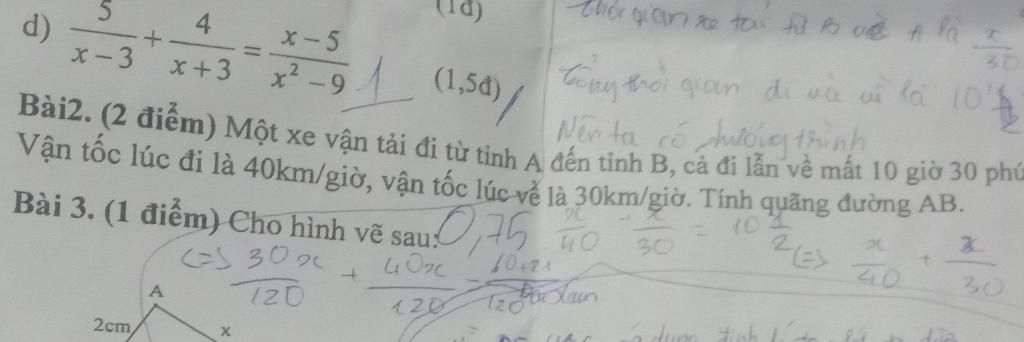 (1đ)
d) 5/(x – 3) + 4/(x + 3) = (x – 5)/(x² – 9)
1
(1,5đ)
thời gian xe tải từ B về A là x/30
tổng thời gian đi và về là 10
Nên ta có phương trình
Bài2. (2 điểm) Một xe vận tải đi từ tỉnh A đến tỉnh B, cả đi lẫn về mất 10 giờ 30 phú
Vận tốc lúc đi là 40km/giờ, vận tốc lúc về là 30km/giờ. Tính quãng đường AB.
Bài 3. (1 điểm) Cho hình vẽ sau:
0,75
x/40 x/30 = 10 1/2 (=> x/40 + x/30
<=> 30x/120 + 40x/120 =
A
2cm
x